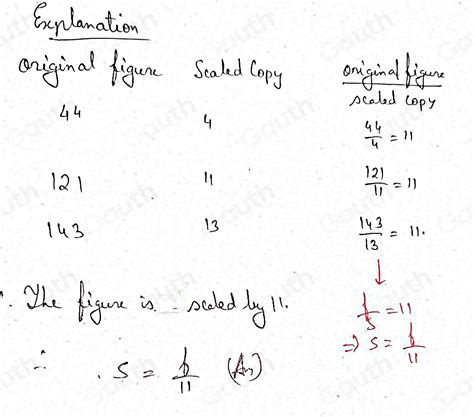 Explanation
original figure Scaled Copy original figure / scaled copy
44 4 44/4 = 11
121 11 121/11 = 11
143 13 143/13 = 11.
↓
∴ The figure is scaled by 11. f/s = 11
⇒ s = f/11
∴ s = f/11 (An)